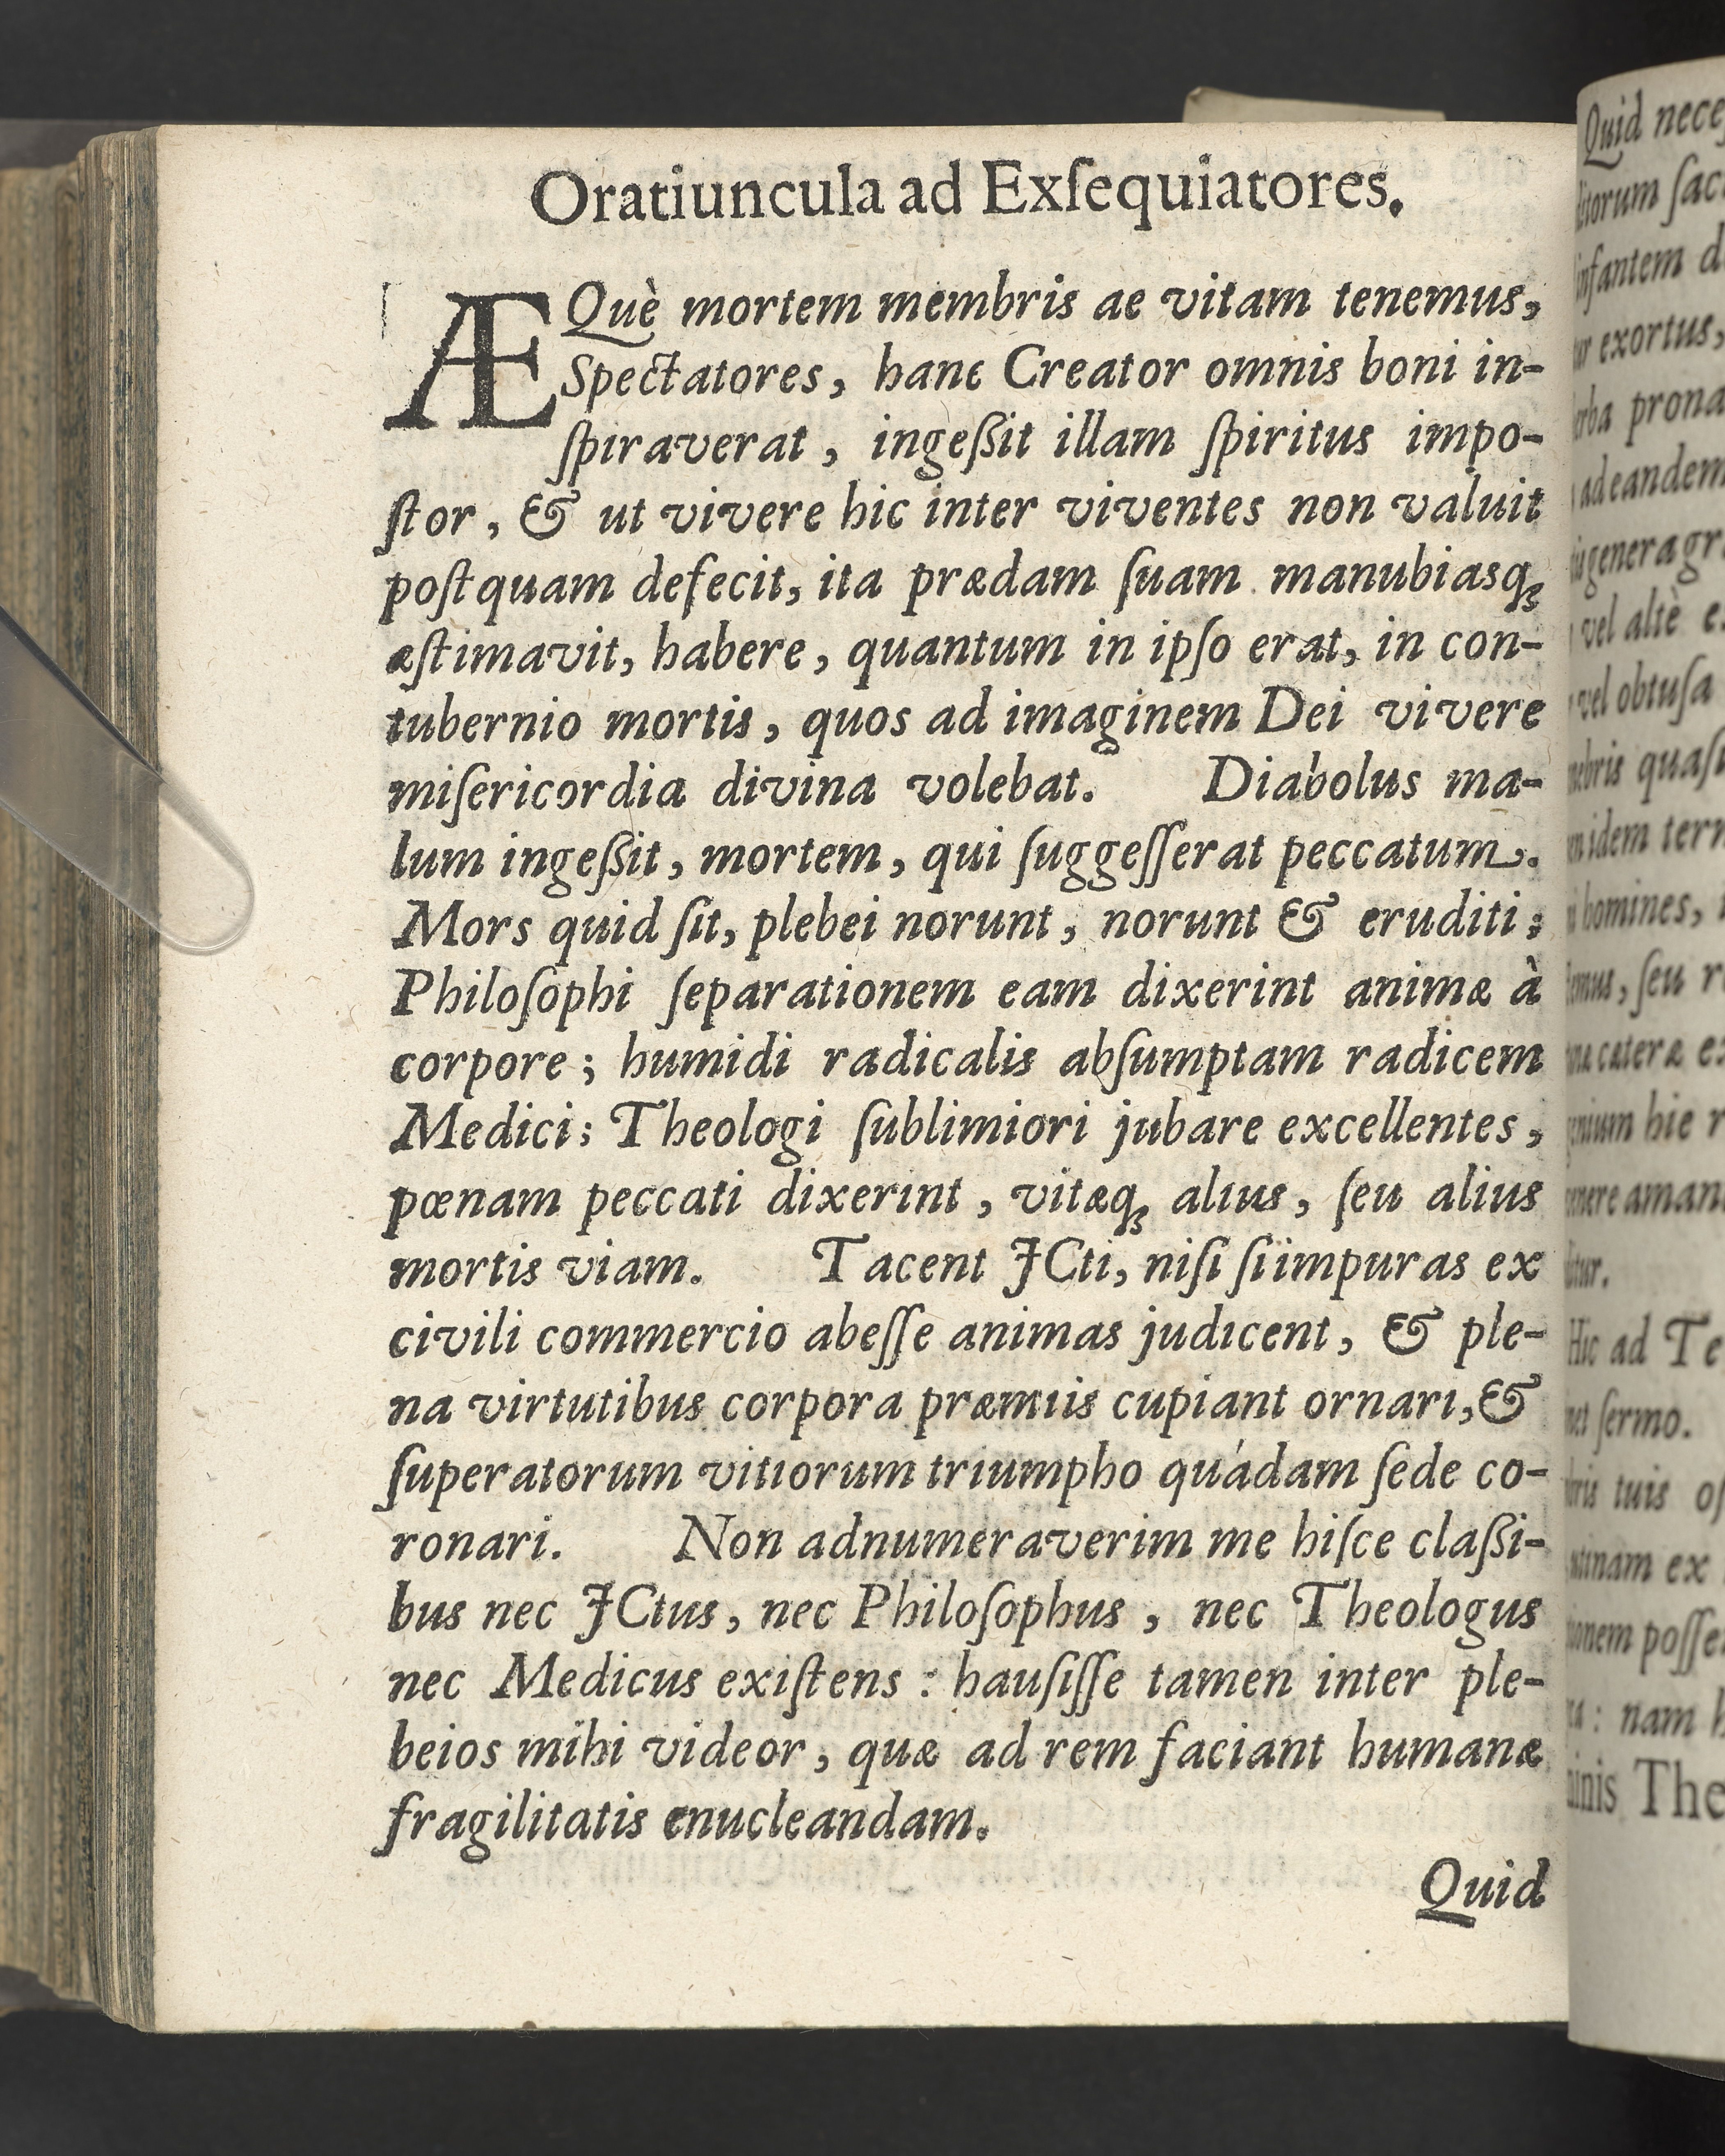 Oratiuncula ad Exſequiatores.
ÆQuè mortem membris ae vitam tenemus,
Spectatores, hanc Creator omnis boni in-
ſpiraverat, ingeßit illam ſpiritus impo-
ſtor, & ut vivere hic inter viventes non valuit
poſtquam defecit, ita prædam ſuam manubiasq́ꝫ
æſtimavit, habere, quantum in ipſo erat, in con-
tubernio mortis, quos ad imaginem Dei vivere
miſericordia divina volebat. Diabolus ma-
lum ingeßit, mortem, qui ſuggeſſerat peccatum.
Mors quid ſit, plebei norunt, norunt & eruditi;
Philoſophi ſeparationem eam dixerint animæ à
corpore; humidi radicalis abſumptam radicem
Medici; Theologi ſublimiori jubare excellentes,
pœnam peccati dixerint, vitæqꝫ alius, ſeu alius
mortis viam. Tacent JCti, niſi ſi impuras ex
civili commercio abeſſe animas judicent, & ple-
na virtutibus corpora præmiis cupiant ornari, &
ſuperatorum vitiorum triumpho quádam ſede co-
ronari. Non adnumeraverim me hiſce claßi-
bus nec JCtus, nec Philoſophus, nec Theologus
nec Medicus exiſtens: hauſiſſe tamen inter ple-
beios mihi videor, quæ ad rem faciant humanæ
fragilitatis enucleandam.
Quid
Quid
infantem
exortus,
prona
ad eandem
genera
vel altè
vel obtuſa
quaſi
idem
homines,
ſeu
cæteræ
hic
Hic ad
ſermo.
tuis
ex
: nam